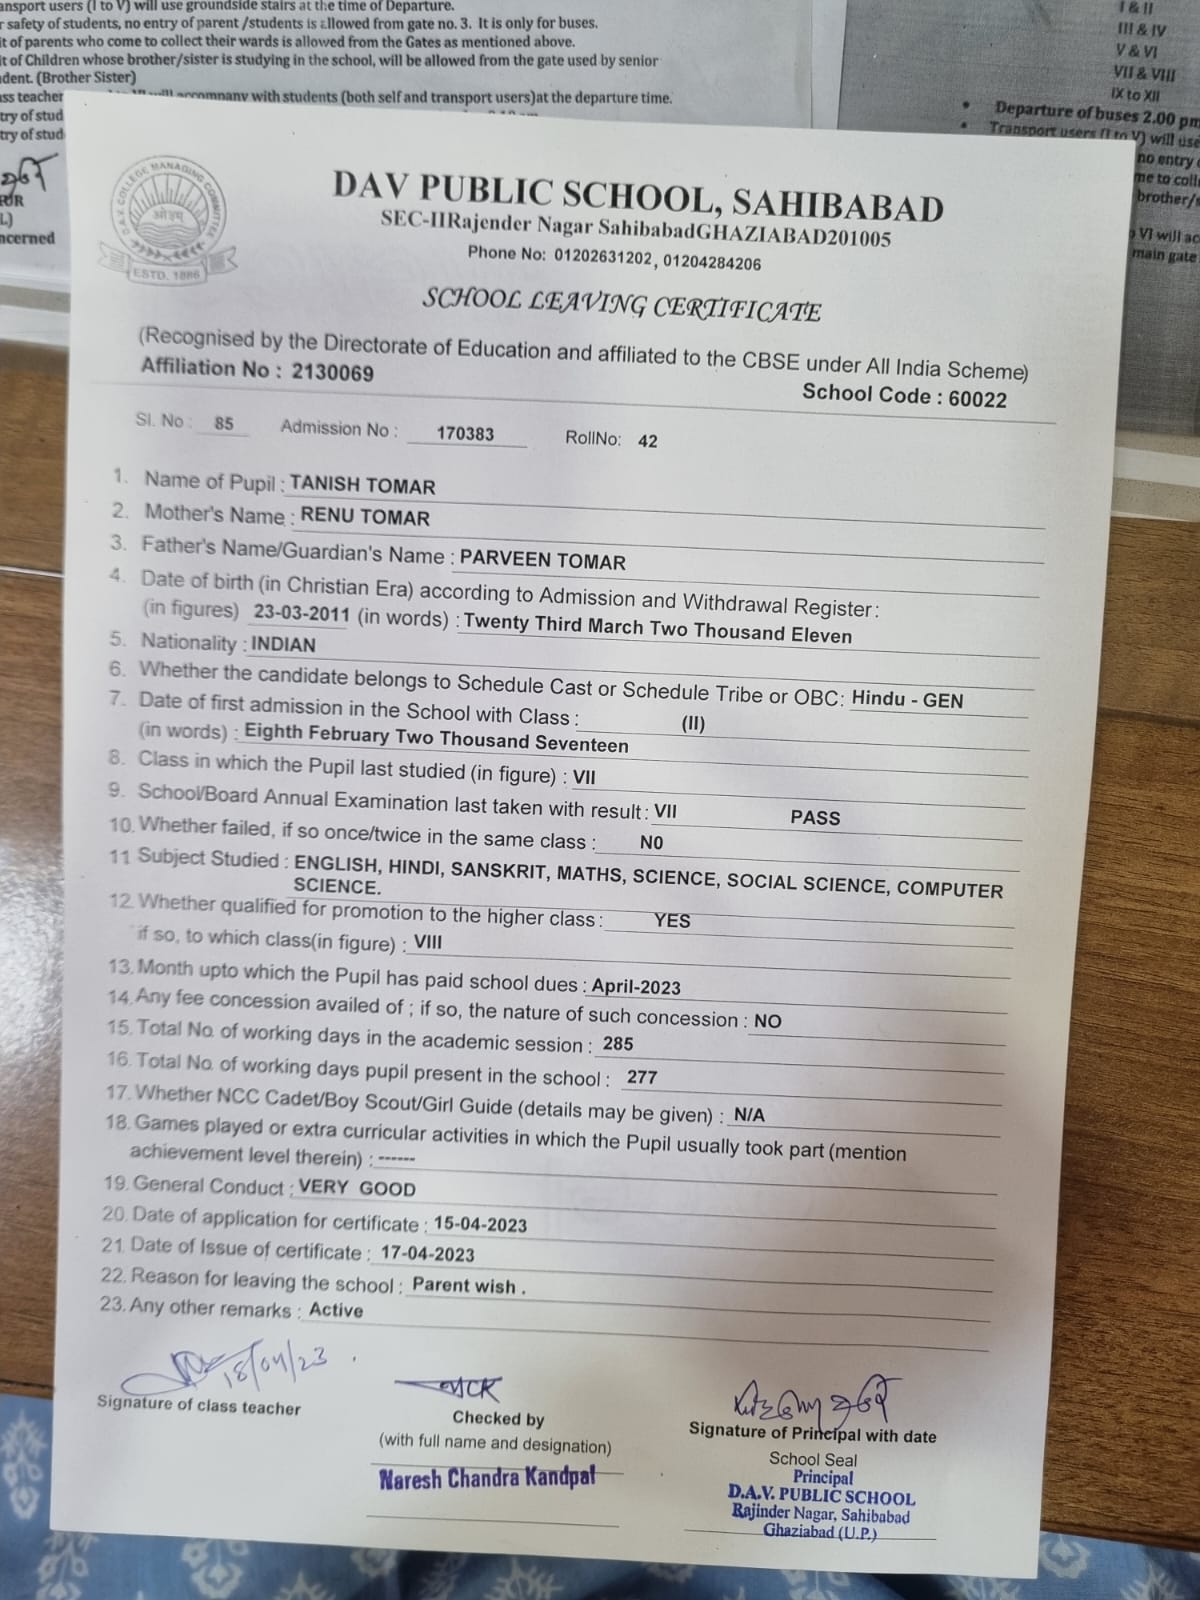 ansport users (I to V) will use groundside stairs at the time of Departure.
r safety of students, no entry of parent /students is allowed from gate no. 3. It is only for buses.
it of parents who come to collect their wards is allowed from the Gates as mentioned above.
it of Children whose brother/sister is studying in the school, will be allowed from the gate used by senior
dent. (Brother Sister)
ss teacher will accompany with students (both self and transport users)at the departure time.
try of stud
try of stud
L)
ncerned
I & II
III & IV
V & VI
VII & VIII
IX to XII
• Departure of buses 2.00 pm
• Transport users (I to V) will use
no entry
me to coll
brother/s
VI will ac
main gate
D.A.V. COLLEGE MANAGING COMMITTEE
ओ३म्
ESTD. 1886
DAV PUBLIC SCHOOL, SAHIBABAD
SEC-IIRajender Nagar SahibabadGHAZIABAD201005
Phone No: 01202631202, 01204284206
SCHOOL LEAVING CERTIFICATE
(Recognised by the Directorate of Education and affiliated to the CBSE under All India Scheme)
Affiliation No : 2130069
School Code : 60022
Sl. No : 85 Admission No : 170383 RollNo: 42
1. Name of Pupil : TANISH TOMAR
2. Mother's Name : RENU TOMAR
3. Father's Name/Guardian's Name : PARVEEN TOMAR
4. Date of birth (in Christian Era) according to Admission and Withdrawal Register:
(in figures) 23-03-2011 (in words) : Twenty Third March Two Thousand Eleven
5. Nationality : INDIAN
6. Whether the candidate belongs to Schedule Cast or Schedule Tribe or OBC: Hindu - GEN
7. Date of first admission in the School with Class : (II)
(in words) : Eighth February Two Thousand Seventeen
8. Class in which the Pupil last studied (in figure) : VII
9. School/Board Annual Examination last taken with result : VII PASS
10. Whether failed, if so once/twice in the same class : N0
11 Subject Studied : ENGLISH, HINDI, SANSKRIT, MATHS, SCIENCE, SOCIAL SCIENCE, COMPUTER
SCIENCE.
12. Whether qualified for promotion to the higher class : YES
if so, to which class(in figure) : VIII
13. Month upto which the Pupil has paid school dues : April-2023
14. Any fee concession availed of ; if so, the nature of such concession : NO
15. Total No. of working days in the academic session : 285
16. Total No. of working days pupil present in the school : 277
17. Whether NCC Cadet/Boy Scout/Girl Guide (details may be given) : N/A
18. Games played or extra curricular activities in which the Pupil usually took part (mention
achievement level therein) : ------
19. General Conduct : VERY GOOD
20. Date of application for certificate : 15-04-2023
21. Date of Issue of certificate : 17-04-2023
22. Reason for leaving the school : Parent wish .
23. Any other remarks : Active
18/04/23
Signature of class teacher
Checked by
(with full name and designation)
Naresh Chandra Kandpal
Signature of Principal with date
School Seal
Principal
D.A.V. PUBLIC SCHOOL
Rajinder Nagar, Sahibabad
Ghaziabad (U.P.)